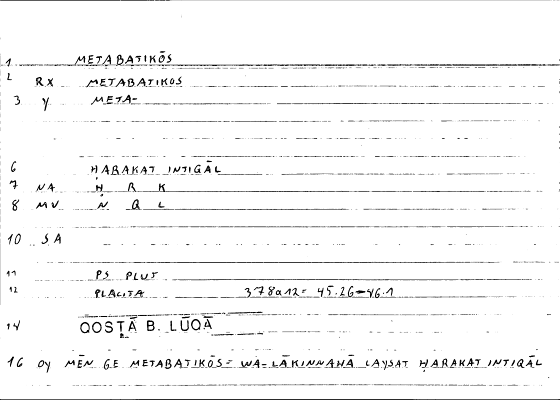 1 METABATIKŌS
2 RX METABATIKOS
3 Y META-
6 ḤARAKAT INTIQĀL
7 NA Ḥ R K
8 MV N Q L
10 SA
11 PS PLUT
12 PLACITA 378a12= 45.26-46.1
14 QOSṬĀ B. LŪQĀ
16 OY MĒN GE METABATIKŌS= WA-LĀKINNAHĀ LAYSAT ḤARAKAT INTIQĀL